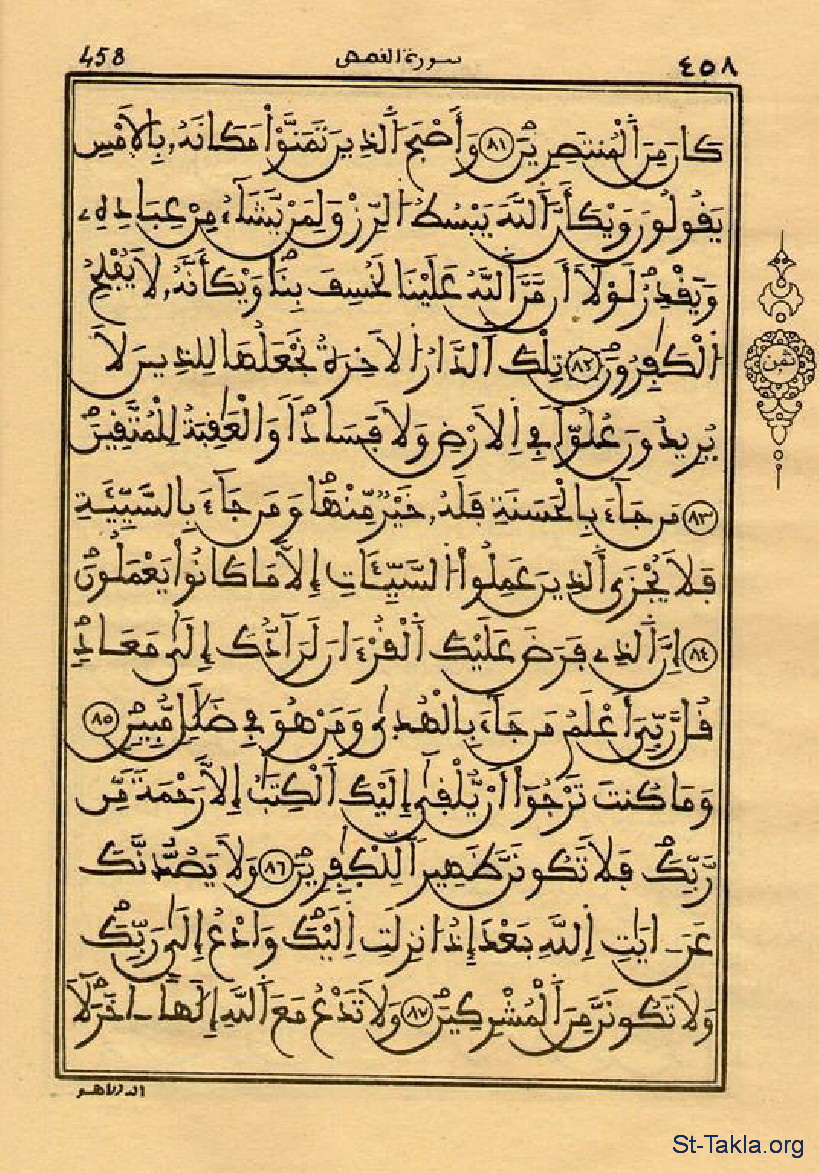 458 سورة القصص ٤٥٨
كَانَ مِنَ اَ۬لْمُنتَصِرِينَۖ ٨١ وَأَصْبَحَ اَ۬لذِينَ تَمَنَّوْاْ مَكَانَهُۥ بِالَامْسِ
يَقُولُونَ وَيْكَأَنَّ اَ۬للَّهَ يَبْسُطُ اُ۬لرِّزْقَ لِمَنْ يَّشَآءُ مِنْ عِبَادِهِۦ
وَيَقْدِرُۖ لَوْلَآ أَن مَّنَّ اَ۬للَّهُ عَلَيْنَا لَخُسِفَ بِنَاۖ وَيْكَأَنَّهُۥ لَا يُفْلِحُ
اُ۬لْكَٰفِرُونَۖ ٨٢ تِلْكَ اَ۬لدَّارُ اُ۬لَاخِرَةُ نَجْعَلُهَا لِلذِينَ لَا
يُرِيدُونَ عُلُوّاٗ فِے اِ۬لَارْضِ وَلَا فَسَاداٗۖ وَالْعَٰقِبَةُ لِلْمُتَّقِينَۖ
٨٣ مَن جَآءَ بِالْحَسَنَةِ فَلَهُۥ خَيْرٞ مِّنْهَاۖ وَمَن جَآءَ بِالسَّيِّئَةِ
فَلَا يُجْزَى اَ۬لذِينَ عَمِلُواْ اُ۬لسَّيِّـَٔاتِ إِلَّا مَا كَانُواْ يَعْمَلُونَۖ
٨٤ إِنَّ اَ۬لذِے فَرَضَ عَلَيْكَ اَ۬لْقُرْءَانَ لَرَآدُّكَ إِلَىٰ مَعَادٖۖ
قُل رَّبِّيَ أَعْلَمُ مَن جَآءَ بِالْهُدَىٰ وَمَنْ هُوَ فِے ضَلَٰلٖ مُّبِينٖۖ ٨٥
وَمَا كُنتَ تَرْجُوٓاْ أَنْ يُّلْقَىٰٓ إِلَيْكَ اَ۬لْكِتَٰبُ إِلَّا رَحْمَةٗ مِّن
رَّبِّكَۖ فَلَا تَكُونَنَّ ظَهِيراٗ لِّلْكَٰفِرِينَۖ ٨٦ وَلَا يَصُدُّنَّكَ
عَنَ اٰيَٰتِ اِ۬للَّهِ بَعْدَ إِذُ ا۟نزِلَتِ اِلَيْكَۖ وَادْعُ إِلَىٰ رَبِّكَۖ
وَلَا تَكُونَنَّ مِنَ اَ۬لْمُشْرِكِينَۖ ٨٧ وَلَا تَدْعُ مَعَ اَ۬للَّهِ إِلَٰهاً اٰخَرَۖ لَآ
إله إلا هو
ثمن
St-Takla.org